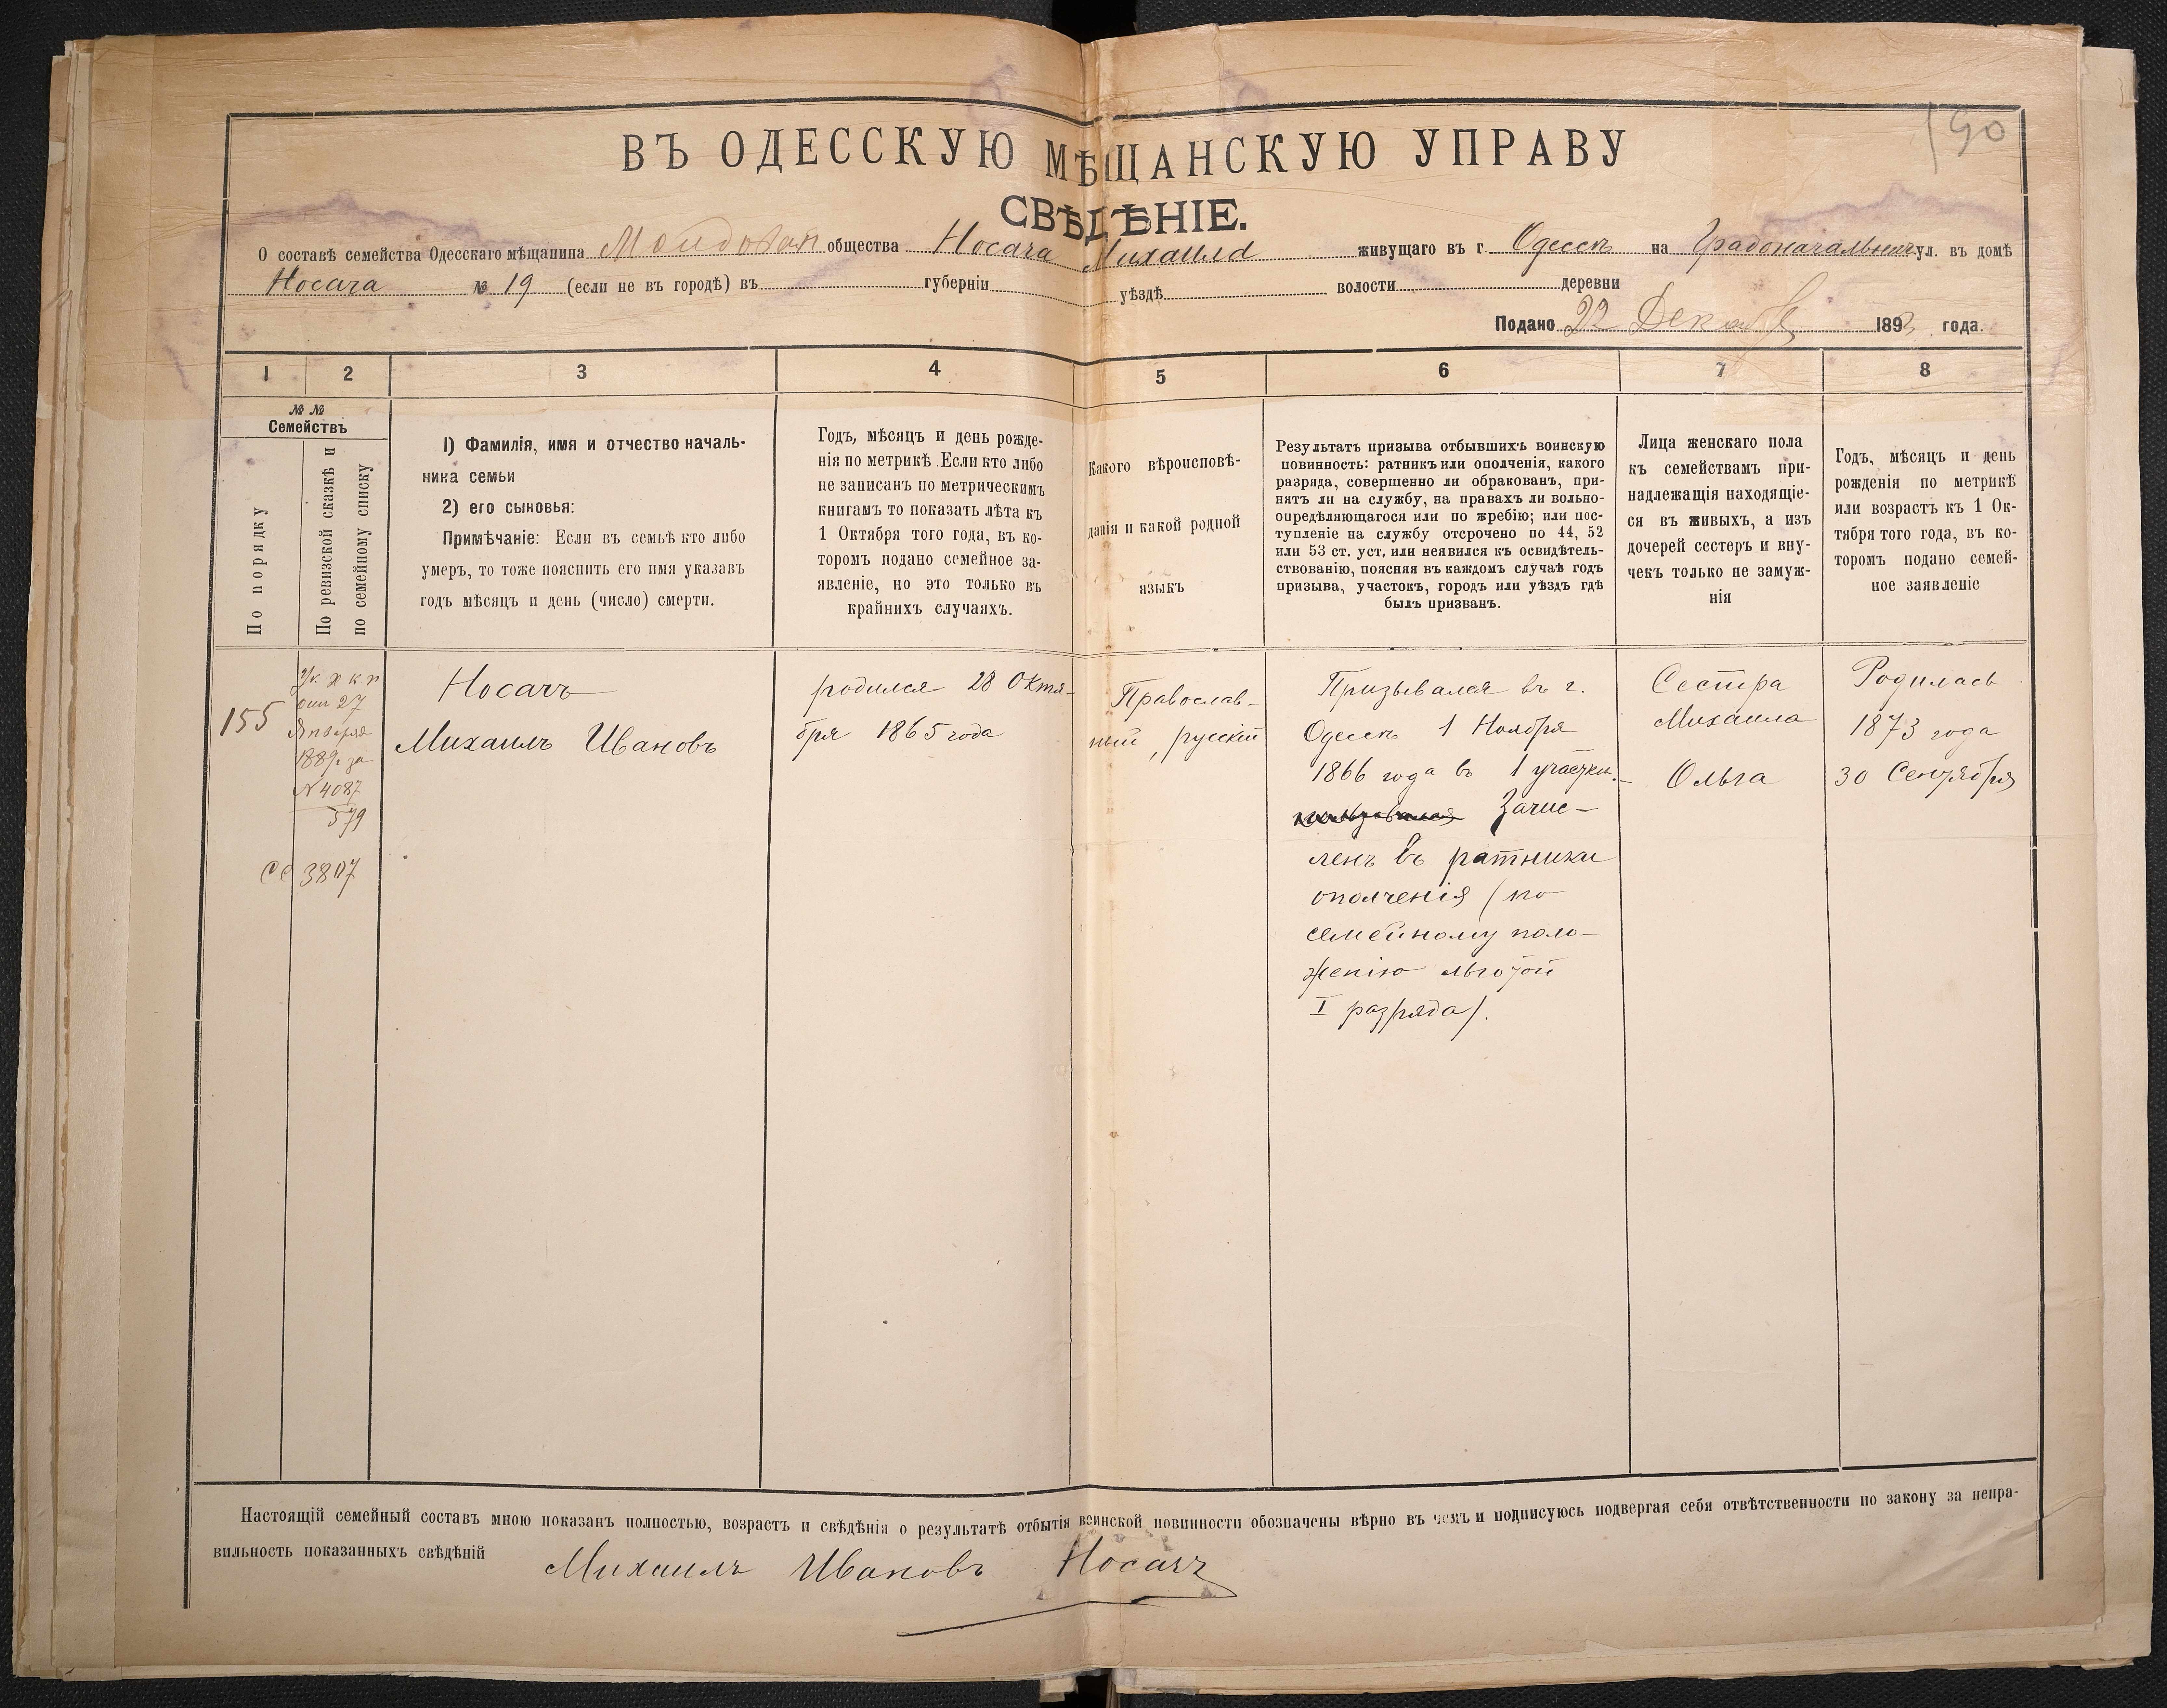 190
ВЪ ОДЕССКУЮ МѢЩАНСКУЮ УПРАВУ
СВѢДѢНІЕ.
О составѣ семейства Одесскаго мѣщанина общества Носача Михаила живущаго въ г. Одессѣ на Градоначальнич ул. въ домѣ
Носача № 19 (если не въ городѣ) въ губерніи уѣздѣ волости деревни
Подано 22 Декабр 1893 года.
1 2 3 4 5 6 7 8
№ №
Семействъ
По порядку
По ревизской сказкѣ и
по семейному списку
1) Фамилія, имя и отчество началь-
ника семьи
2) его сыновья:
Примѣчаніе: Если въ семьѣ кто либо
умеръ, то тоже пояснить его имя указавъ
годъ мѣсяцъ и день (число) смерти.
Годъ, мѣсяцъ и день рожде-
нія по метрикѣ Если кто либо
не записанъ по метрическимъ
книгамъ то показать лѣта къ
1 Октября того года, въ ко-
торомъ подано семейное за-
явленіе, но это только въ
крайнихъ случаяхъ.
Какого вѣроисповѣ-
данія и какой родной
языкъ
Результатъ призыва отбывшихъ воинскую
повинность: ратникъ или ополченія, какого
разряда, совершенно ли обракованъ, при-
нятъ ли на службу, на правахъ ли вольно-
опредѣляющагося или по жребію; или пос-
тупленіе на службу отсрочено по 44, 52
или 53 ст. уст, или неявился къ освидѣтель-
ствованію, поясняя въ каждомъ случаѣ годъ
призыва, участокъ, городъ или уѣздъ гдѣ
былъ призванъ.
Лица женскаго пола
къ семействамъ при-
надлежащія находящіе-
ся въ живыхъ, а изъ
дочерей сестеръ и вну-
чекъ только не замуж-
нія
Годъ, мѣсяцъ и день
рожденія по метрикѣ
или возрастъ къ 1 Ок-
тября того года, въ ко-
торомъ подано семей-
ное заявленіе
155
Ук. Х к п
отъ 27
Января
1889г. за
№ 4087
579
СС 3807
Носачъ
Михаилъ Ивановъ
родился 28 Октя-
бря 1865 года
Православ-
ный, русскій
Призывался въ г.
Одессѣ 1 Ноября
1866 года въ 1 участкѣ.
Зачис-
ленъ въ ратники
ополченія (по
семейному поло-
женію льготой
I разряда).
Сестра
Михаила
Ольга
Родилась
1873 года
30 Сентября
Настоящій семейный составъ мною показанъ полностью, возрастъ и свѣдѣнія о результатѣ отбытія воинской повинности обозначены вѣрно въ чемъ и подписуюсь подвергая себя отвѣтственности по закону за непра-
вильность показанныхъ свѣдѣній
Михаилъ Ивановъ Носачъ